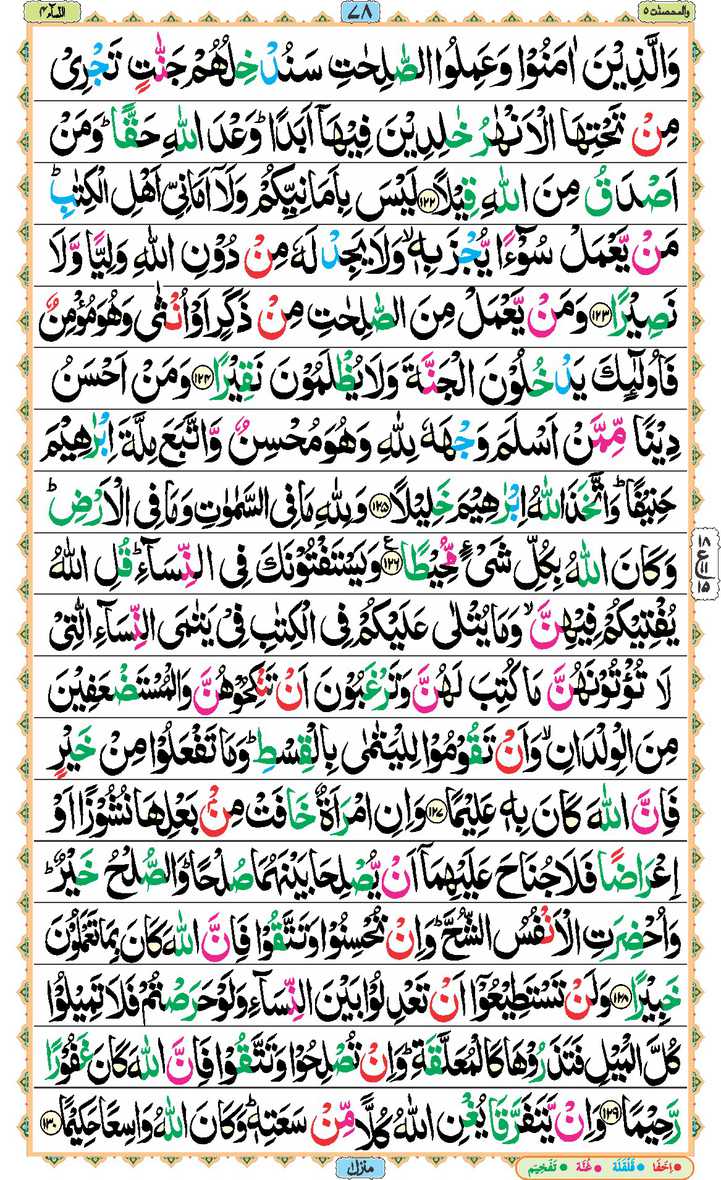 والمحصنت ٥ ٨٧ النساء ٤
وَالَّذِيْنَ اٰمَنُوْا وَعَمِلُوا الصّٰلِحٰتِ سَنُدْخِلُهُمْ جَنّٰتٍ تَجْرِىْ
مِنْ تَحْتِهَا الْاَنْهٰرُ خٰلِدِيْنَ فِيْهَاۤ اَبَدًا ؕ وَعْدَ اللّٰهِ حَقًّا ؕ وَمَنْ
اَصْدَقُ مِنَ اللّٰهِ قِيْلًا ﴿۱۲۲﴾ لَيْسَ بِاَمَانِيِّكُمْ وَلَاۤ اَمَانِىِّ اَهْلِ الْكِتٰبِ ؕ
مَنْ يَّعْمَلْ سُوْٓءًا يُّجْزَ بِهٖ ۙ وَلَا يَجِدْ لَهٗ مِنْ دُوْنِ اللّٰهِ وَلِيًّا وَّلَا
نَصِيْرًا ﴿۱۲۳﴾ وَمَنْ يَّعْمَلْ مِنَ الصّٰلِحٰتِ مِنْ ذَكَرٍ اَوْ اُنْثٰى وَهُوَ مُؤْمِنٌ
فَاُولٰٓئِكَ يَدْخُلُوْنَ الْجَنَّةَ وَلَا يُظْلَمُوْنَ نَقِيْرًا ﴿۱۲۴﴾ وَمَنْ اَحْسَنُ
دِيْنًا مِّمَّنْ اَسْلَمَ وَجْهَهٗ لِلّٰهِ وَهُوَ مُحْسِنٌ وَّاتَّبَعَ مِلَّةَ اِبْرٰهِيْمَ
حَنِيْفًا ؕ وَاتَّخَذَ اللّٰهُ اِبْرٰهِيْمَ خَلِيْلًا ﴿۱۲۵﴾ وَلِلّٰهِ مَا فِى السَّمٰوٰتِ وَمَا فِى الْاَرْضِ ؕ
وَكَانَ اللّٰهُ بِكُلِّ شَىْءٍ مُّحِيْطًا ﴿۱۲۶﴾ ع وَيَسْتَفْتُوْنَكَ فِى النِّسَآءِ ؕ قُلِ اللّٰهُ
۱۸ ع ۱۱ ۱۵
يُفْتِيْكُمْ فِيْهِنَّ ۙ وَمَا يُتْلٰى عَلَيْكُمْ فِى الْكِتٰبِ فِىْ يَتٰمَى النِّسَآءِ الّٰتِىْ
لَا تُؤْتُوْنَهُنَّ مَا كُتِبَ لَهُنَّ وَتَرْغَبُوْنَ اَنْ تَنْكِحُوْهُنَّ وَالْمُسْتَضْعَفِيْنَ
مِنَ الْوِلْدَانِ ۙ وَاَنْ تَقُوْمُوْا لِلْيَتٰمٰى بِالْقِسْطِ ؕ وَمَا تَفْعَلُوْا مِنْ خَيْرٍ
فَاِنَّ اللّٰهَ كَانَ بِهٖ عَلِيْمًا ﴿۱۲۷﴾ وَاِنِ امْرَاَةٌ خَافَتْ مِنْۢ بَعْلِهَا نُشُوْزًا اَوْ
اِعْرَاضًا فَلَا جُنَاحَ عَلَيْهِمَاۤ اَنْ يُّصْلِحَا بَيْنَهُمَا صُلْحًا ؕ وَالصُّلْحُ خَيْرٌ ؕ
وَاُحْضِرَتِ الْاَنْفُسُ الشُّحَّ ؕ وَاِنْ تُحْسِنُوْا وَتَتَّقُوْا فَاِنَّ اللّٰهَ كَانَ بِمَا تَعْمَلُوْنَ
خَبِيْرًا ﴿۱۲۸﴾ وَلَنْ تَسْتَطِيْعُوْۤا اَنْ تَعْدِلُوْا بَيْنَ النِّسَآءِ وَلَوْ حَرَصْتُمْ فَلَا تَمِيْلُوْا
كُلَّ الْمَيْلِ فَتَذَرُوْهَا كَالْمُعَلَّقَةِ ؕ وَاِنْ تُصْلِحُوْا وَتَتَّقُوْا فَاِنَّ اللّٰهَ كَانَ غَفُوْرًا
رَّحِيْمًا ﴿۱۲۹﴾ وَاِنْ يَّتَفَرَّقَا يُغْنِ اللّٰهُ كُلًّا مِّنْ سَعَتِهٖ ؕ وَكَانَ اللّٰهُ وَاسِعًا حَكِيْمًا ﴿۱۳۰﴾
منزل ۱ اِخْفَا قَلْقَلَة غُنَّة تَفْخِيْم